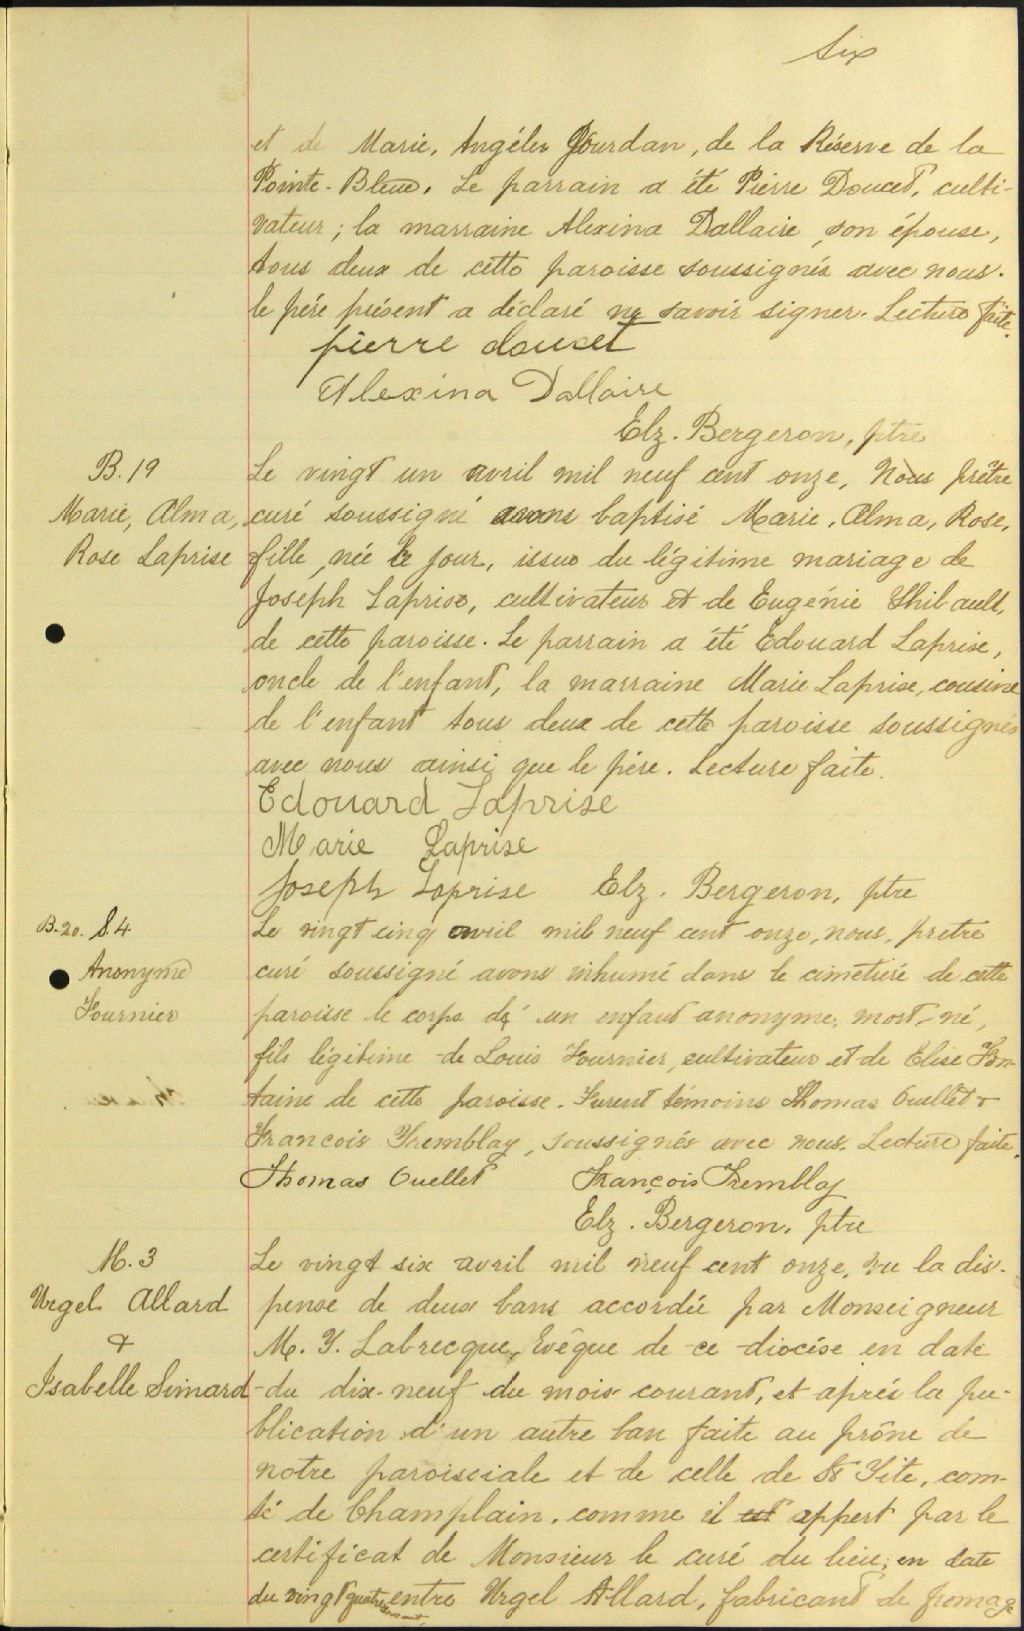 Six
et de Marie, Angélee Jourdan, de la Réserve de la
Pointe-Bleue. Le parrain a été Pierre Doucet, culti-
vateur; la marraine Alexina Dallaire, son épouse,
tous deux de cette paroisse soussignés avec nous.
le père présent a déclaré ne savoir signer. Lecture faite.
pierre doucet
Alexina Dallaire
Elz. Bergeron, ptre
B. 19
Marie, Alma,
Rose Laprise
Le vingt un avril mil neuf cent onze, Nous prêtre
curé soussigné avons baptisé Marie, Alma, Rose,
fille, née le jour, issue du légitime mariage de
Joseph Laprise, cultivateur et de Eugénie Thibault,
de cette paroisse. Le parrain a été Edouard Laprise,
oncle de l'enfant, la marraine Marie Laprise, cousine
de l'enfant tous deux de cette paroisse soussignés
avec nous ainsi que le père. Lecture faite.
Edouard Laprise
Marie Laprise
Joseph Laprise Elz. Bergeron, ptre
B-20. S. 4
Anonyme
Fournier
Le vingt cinq avril mil neuf cent onze, nous, prêtre
curé soussigné avons inhumé dans le cimetière de cette
paroisse le corps d' un enfant anonyme, mort-né,
fils légitime de Louis Fournier, cultivateur et de Elise Fon-
taine de cette paroisse. Furent témoins Thomas Ouellet &
François Tremblay, soussignés avec nous. Lecture faite.
Thomas Ouellet François Tremblay
Elz. Bergeron, ptre
M. 3
Urgel Allard
&
Isabelle Simard
Le vingt six avril mil neuf cent onze, vu la dis-
pense de deux bans accordée par Monseigneur
M. T. Labrecque, Evêque de ce diocèse en date
du dix-neuf du mois courant, et après la pu-
blication d'un autre ban faite au prône de
notre paroissiale et de celle de St Tite, com-
té de Champlain, comme il est appert par le
certificat de Monsieur le curé du lieu, en date
du vingt quatre courant, entre Urgel Allard, fabricant de fromage